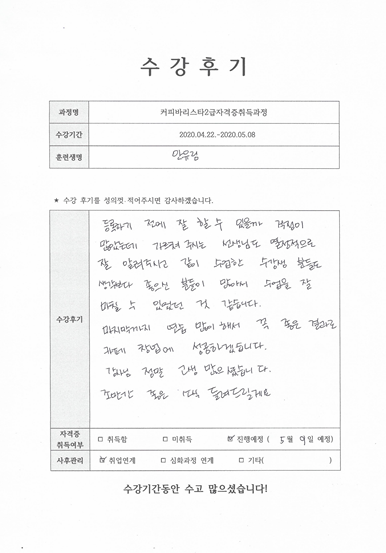 수 강 후 기
과정명 커피바리스타2급자격증취득과정
수강기간 2020.04.22.-2020.05.08
훈련생명 안유림
★ 수강 후기를 성의껏 적어주시면 감사하겠습니다.
수강후기
등록하기 전에 잘 할 수 있을까 걱정이
많았는데 가르쳐 주시는 선생님도 열정적으로
잘 알려주시고 같이 수업한 수강생 분들도
생각보다 좋으신 분들이 많아서 수업을 잘
마칠 수 있었던 것 같습니다.
마지막까지 연습 많이 해서 꼭 좋은 결과로
카페 창업에 성공하겠습니다.
강사님 정말 고생 많으셨습니다.
조만간 좋은 소식 들려드릴게요
자격증 취득여부 □ 취득함 □ 미취득 ☑ 진행예정 ( 5월 9일 예정)
사후관리 ☑ 취업연계 □ 심화과정 연계 □ 기타( )
수강기간동안 수고 많으셨습니다!